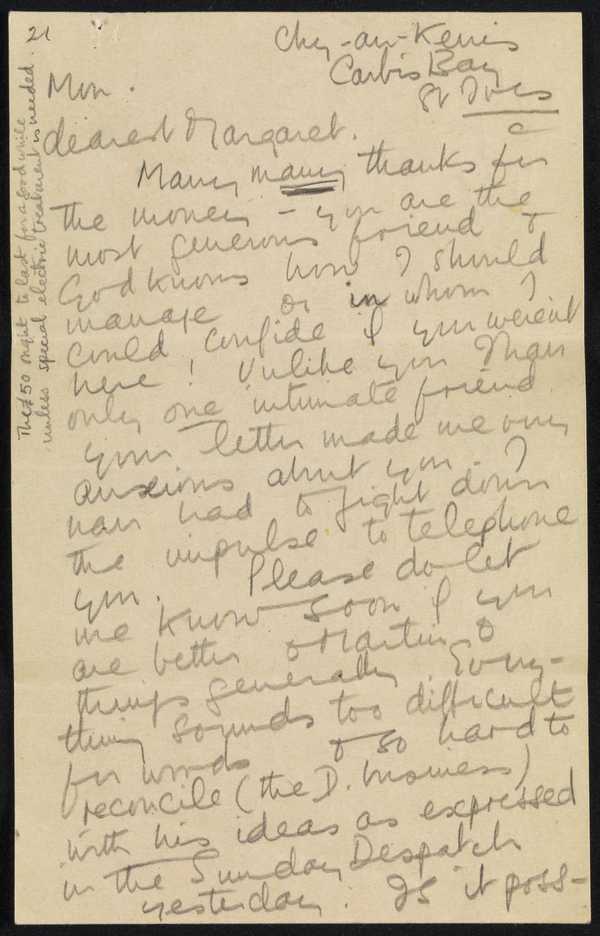 21
Chy-an-Kerris
Carbis Bay
St Ives
Mon.
dearest Margaret.
Many many thanks for
the money - you are the
most generous friend &
God knows how I should
manage or in whom I
could confide if you weren't
here! Unlike you I have
only one intimate friend.
Your letter made me very
anxious about you. I
have had to fight down
the impulse to telephone
you. Please do let
me know soon if you
are better & Martin &
things generally. Every-
thing sounds too difficult
for words & so hard to
reconcile (the D. business)
with his ideas as expressed
in the Sunday Despatch
yesterday. Is it poss-
The £50 ought to last for a good while
unless special electric treatment is needed.